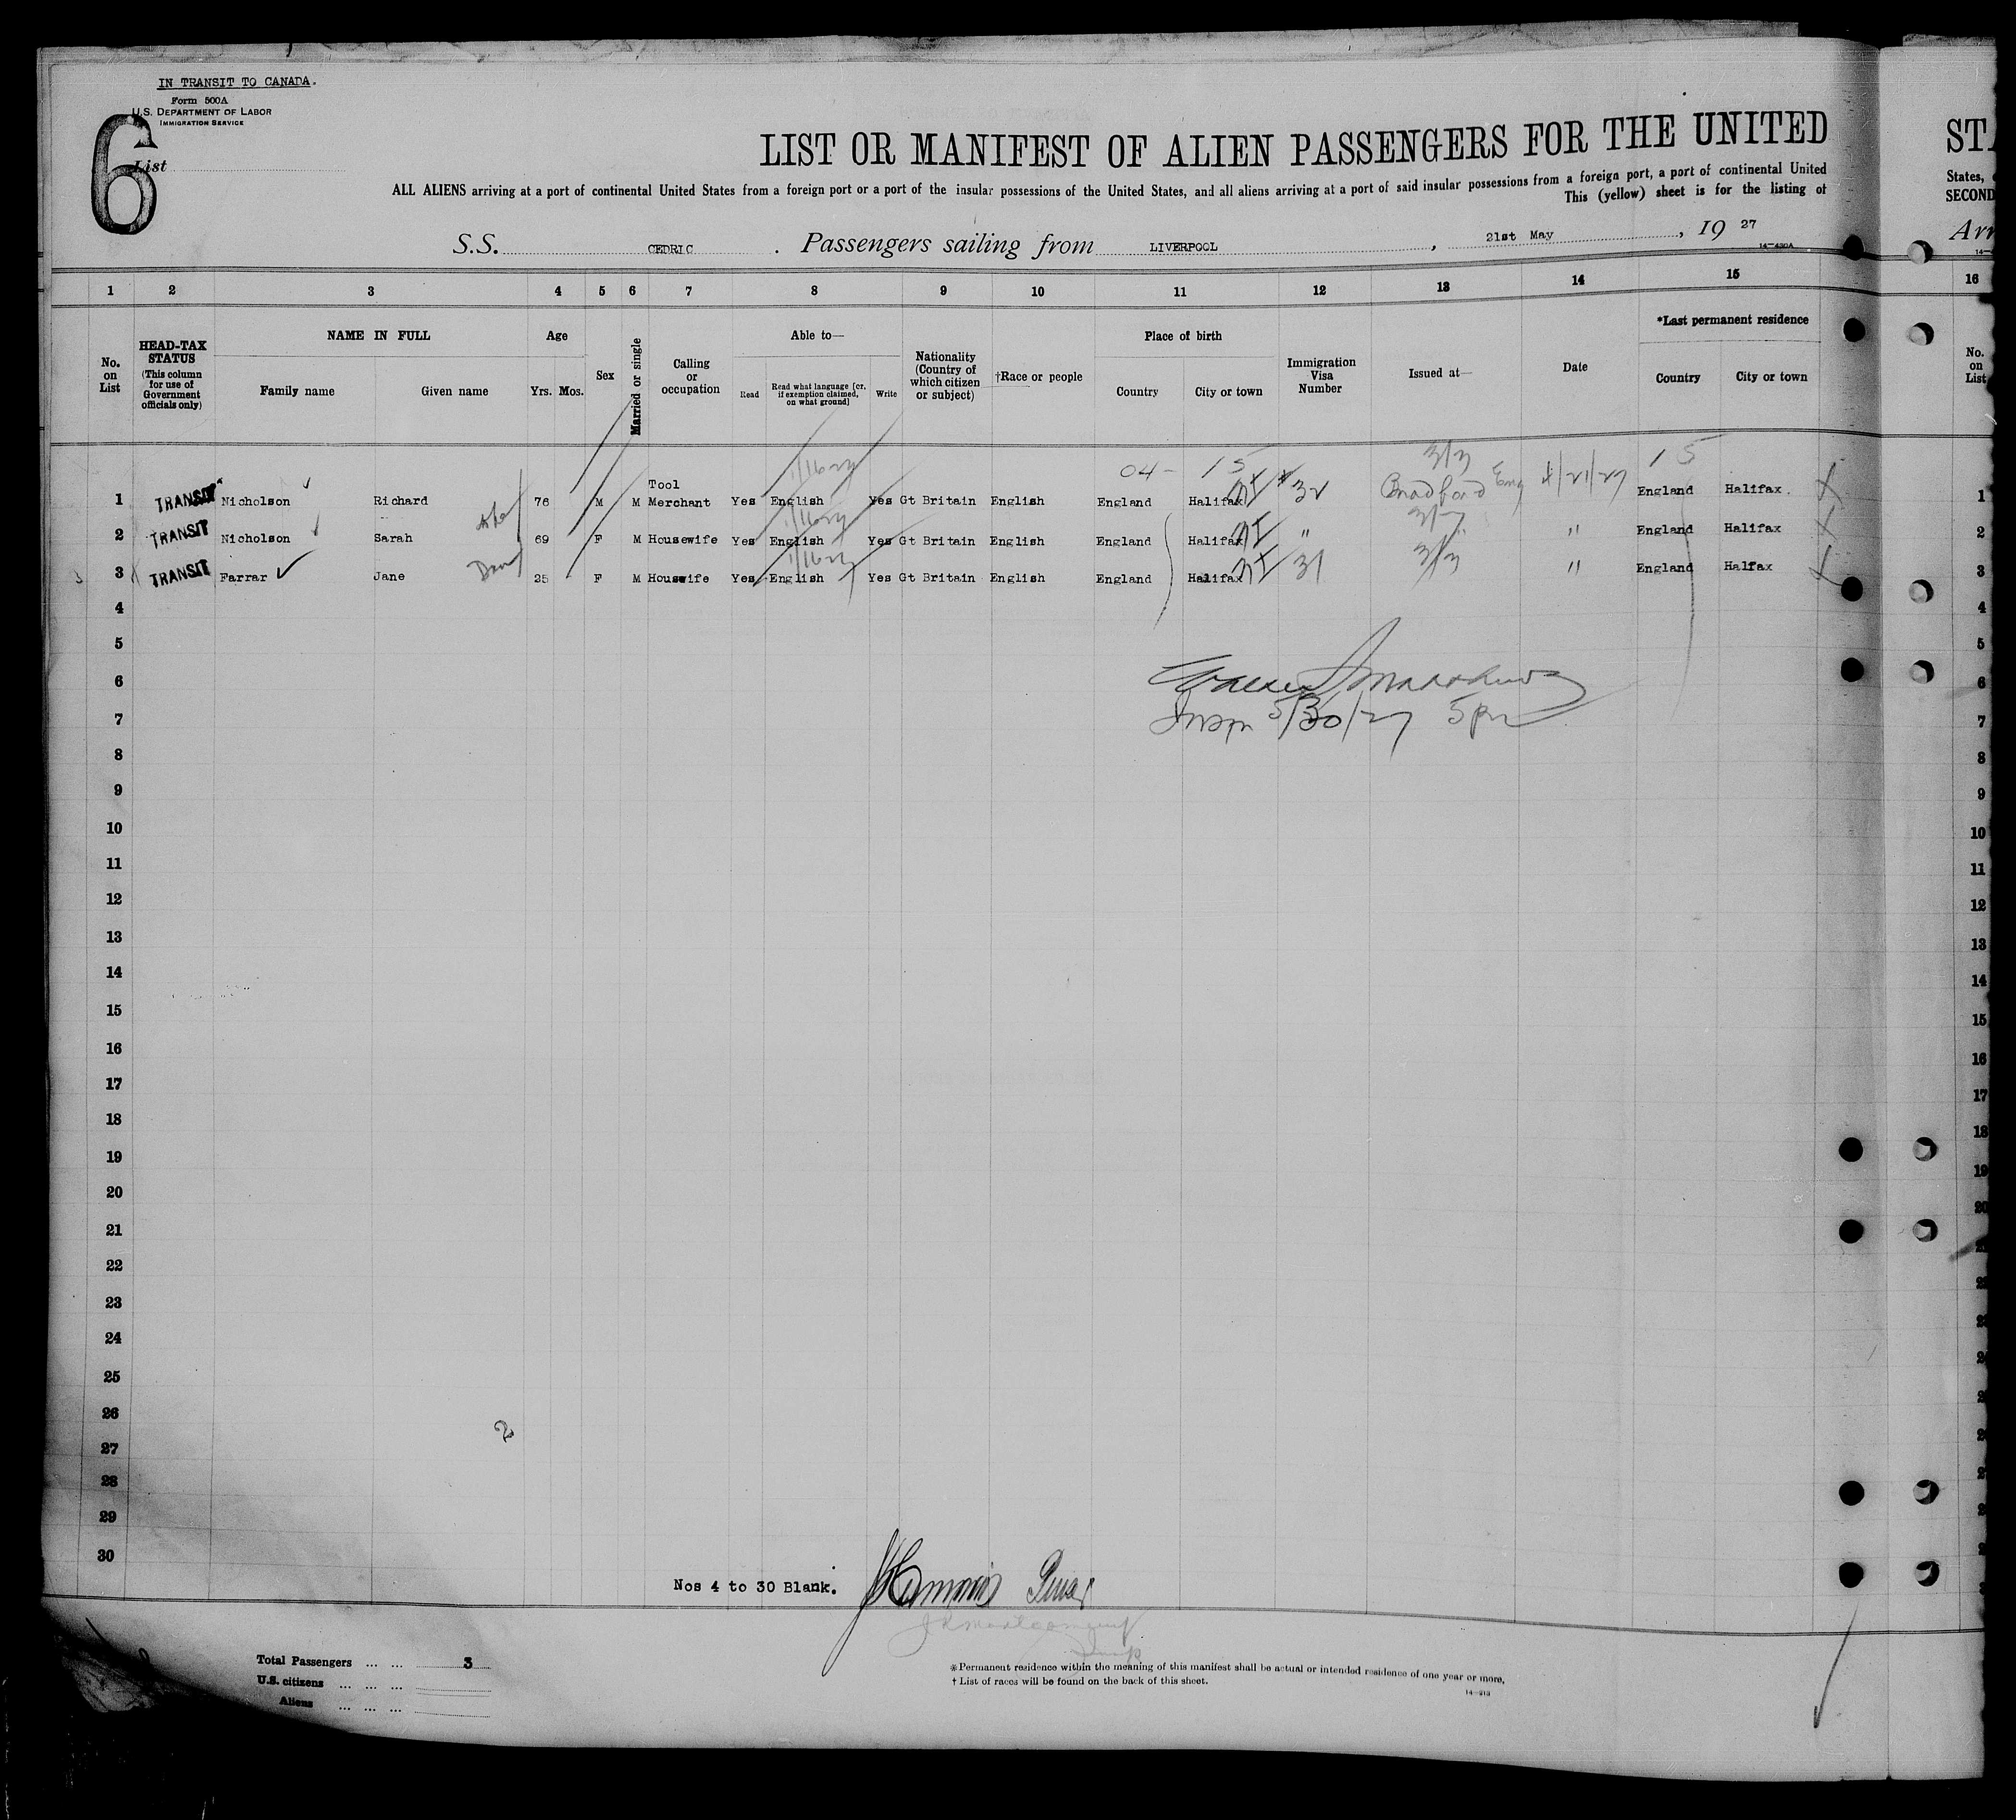 IN TRANSIT TO CANADA.
Form 500A
U.S. DEPARTMENT OF LABOR
IMMIGRATION SERVICE
6
List
LIST OR MANIFEST OF ALIEN PASSENGERS FOR THE UNITED
STA
ALL ALIENS arriving at a port of continental United States from a foreign port or a port of the insular possessions of the United States, and all aliens arriving at a port of said insular possessions from a foreign port, a port of continental United
States,
This (yellow) sheet is for the listing of
SECOND
S.S. CEDRIC . Passengers sailing from LIVERPOOL , 21st May , 19 27
Arr
14-430A
1 2 3 4 5 6 7 8 9 10 11 12 13 14 15 16
No. on List
HEAD-TAX STATUS
(This column for use of Government officials only)
NAME IN FULL
Family name Given name
Age
Yrs. Mos.
Sex
Married or single
Calling or occupation
Able to—
Read Read what language [or, if exemption claimed, on what ground] Write
Nationality (Country of which citizen or subject)
†Race or people
Place of birth
Country City or town
Immigration Visa Number
Issued at—
Date
*Last permanent residence
Country City or town
No. on List
04- 15 15
1 TRANSIT Nicholson Richard 76 M M Tool Merchant Yes English Yes Gt Britain English England Halifax 32 Bradford Eng 4/21/27 England Halifax. 1
2 TRANSIT Nicholson Sarah 69 F M Housewife Yes English Yes Gt Britain English England Halifax " " England Halifax 2
3 TRANSIT Farrar Jane 25 F M Housewife Yes English Yes Gt Britain English England Halifax 31 " England Halfax 3
4 4
5 5
6 6
Insp 5/30/27 5 pm
7 7
8 8
9 9
10 10
11 11
12 12
13 13
14 14
15 15
16 16
17 17
18 18
19 19
20 20
21
22
23
24
25
26
27
28
29
30
Nos 4 to 30 Blank.
Total Passengers ... ... 3
U.S. citizens ... ... ...
Aliens ... ... ...
*Permanent residence within the meaning of this manifest shall be actual or intended residence of one year or more.
† List of races will be found on the back of this sheet.
14-213